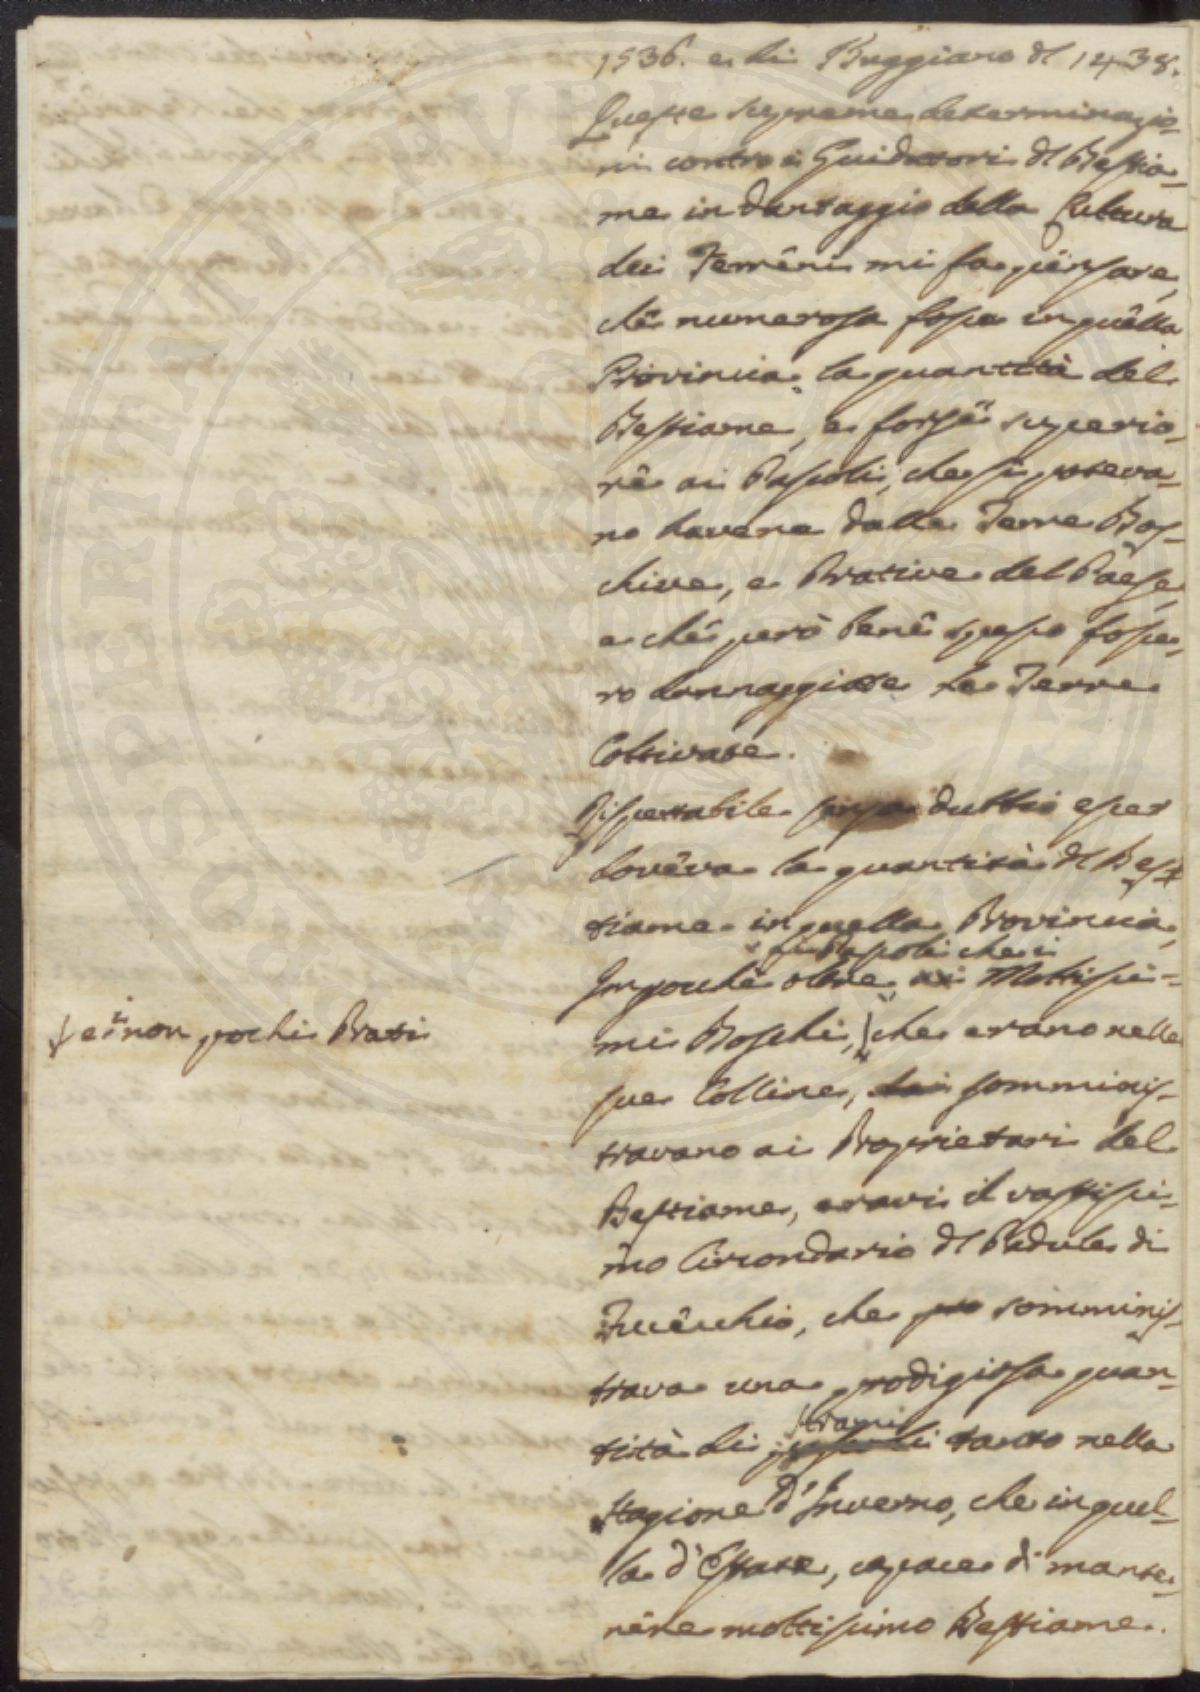 1536. e di Buggiano del 1438.
Queste supreme determinazio-
ni contro i Guidatori del Bestia-
me in vantaggio della Cultura
dei Terreni mi fa pensare,
che numerosa fosse in quella
Provincia la quantità del
Bestiame, e forse superio-
re ai Pascoli, che si poteva-
no havere dalle Terre Bos-
chive, e Prative del Paese
e che però bene spesso fosse-
ro dannaggiate le Terre
Coltivate.
Rispettabile senza dubbio esser
doveva la quantità del Bes-
tiame in quella Provincia,
Imperochè oltre ai Pascoli che i Moltissi-
mi Boschi, che erano nelle
e i non pochi Prati
sue Colline, somminis-
travano ai Proprietari del
Bestiame, eravi il vastissi-
mo Circondario del Padule di
Fucecchio, che somminis-
trava una prodigiosa quan-
tità di strami tanto nella
stagione d'Inverno, che in quel-
la d'Estate, capace di mante-
nere moltissimo Bestiame.
PROSPERITATI PUBLICAE